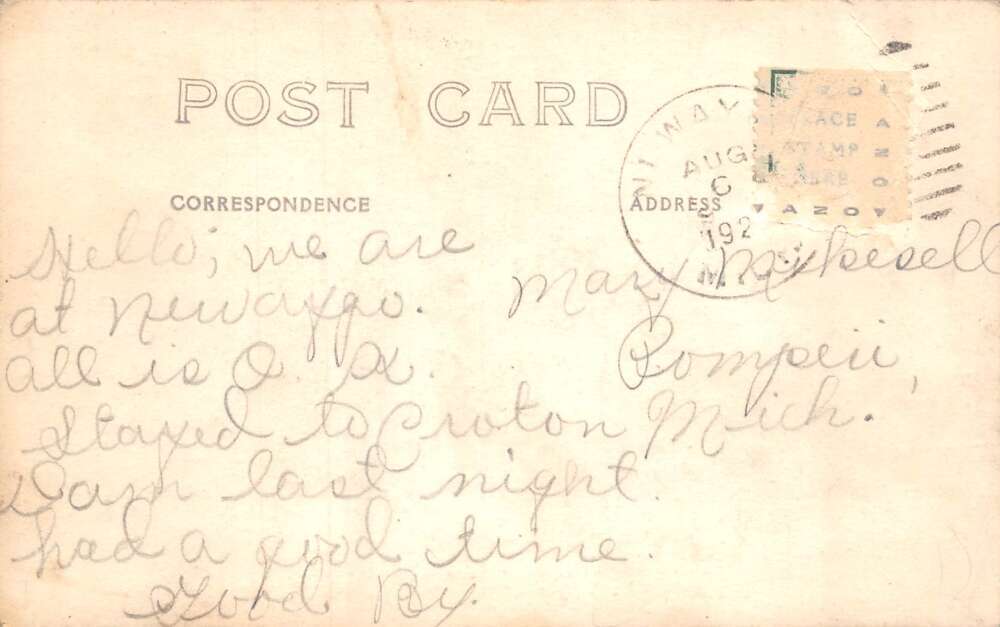 POST CARD
CORRESPONDENCE
ADDRESS
AUG
192
PLACE
STAMP
HERE
AZO
Hello; we are
at Newaygo.
all is O. K.
Stayed to Croton
Dam last night.
had a good time.
Good By.
Mary Mikesell
Pompeii,
Mich.